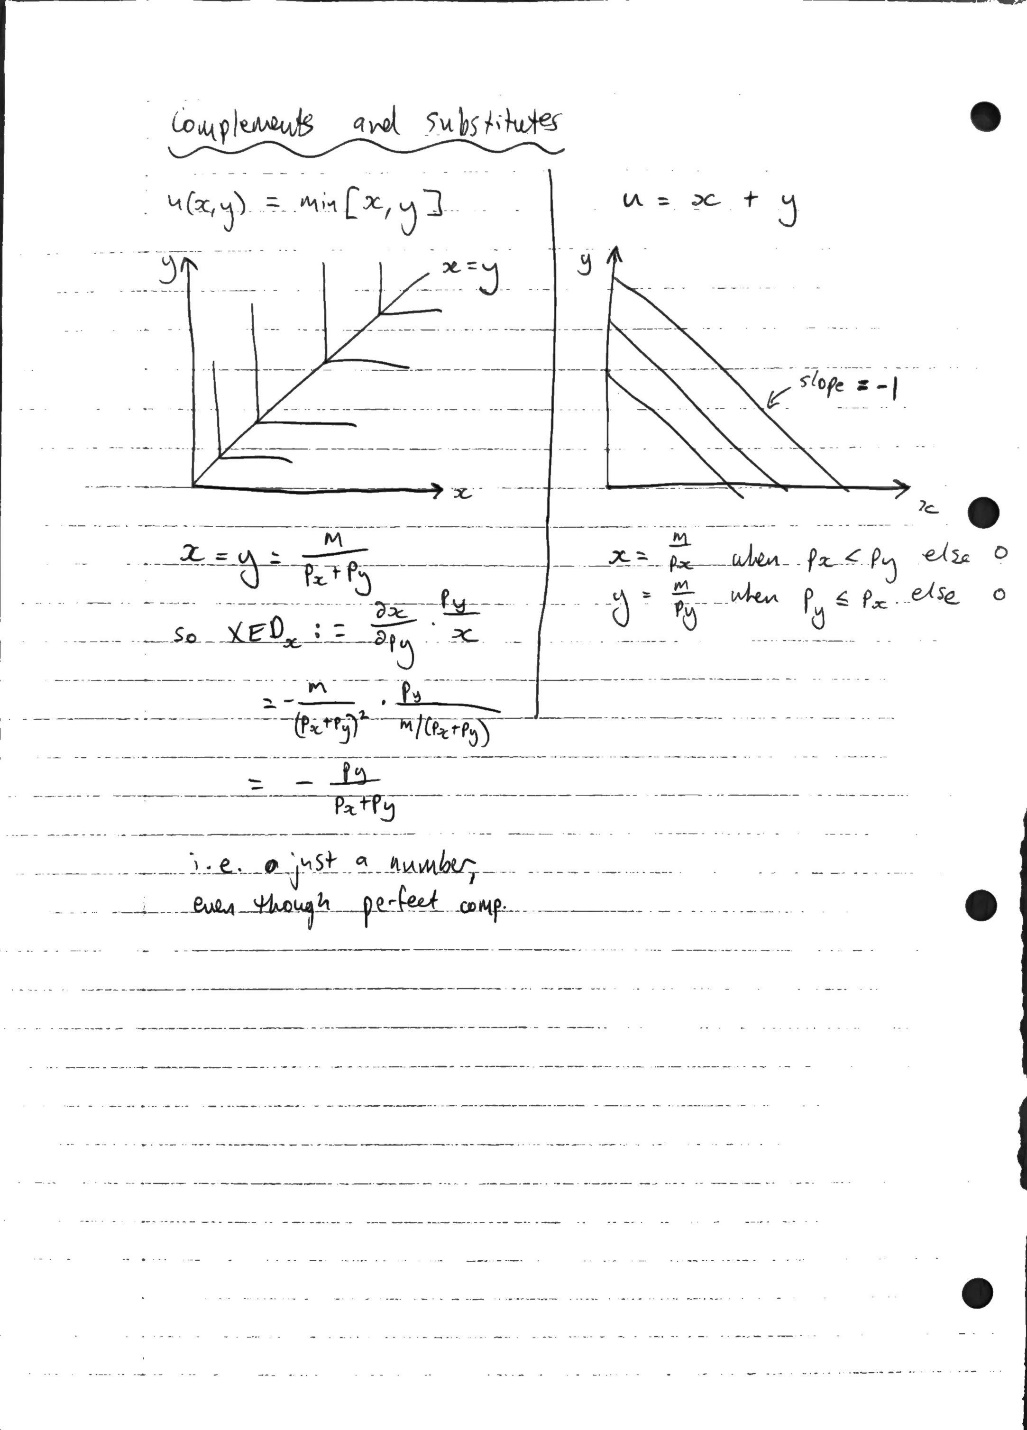 complements and substitutes
u(x,y) = min[x,y]
y
x=y
x
x = y = m/(Px+Py)
so XEDx := ∂x/∂Py · Py/x
= - m/(Px+Py)² · Py/(m/(Px+Py))
= - Py/(Px+Py)
i.e. just a number,
even though perfect comp.
u = x + y
y
slope = -1
x
x = m/Px when Px < Py else 0
y = m/Py when Py ≤ Px else 0